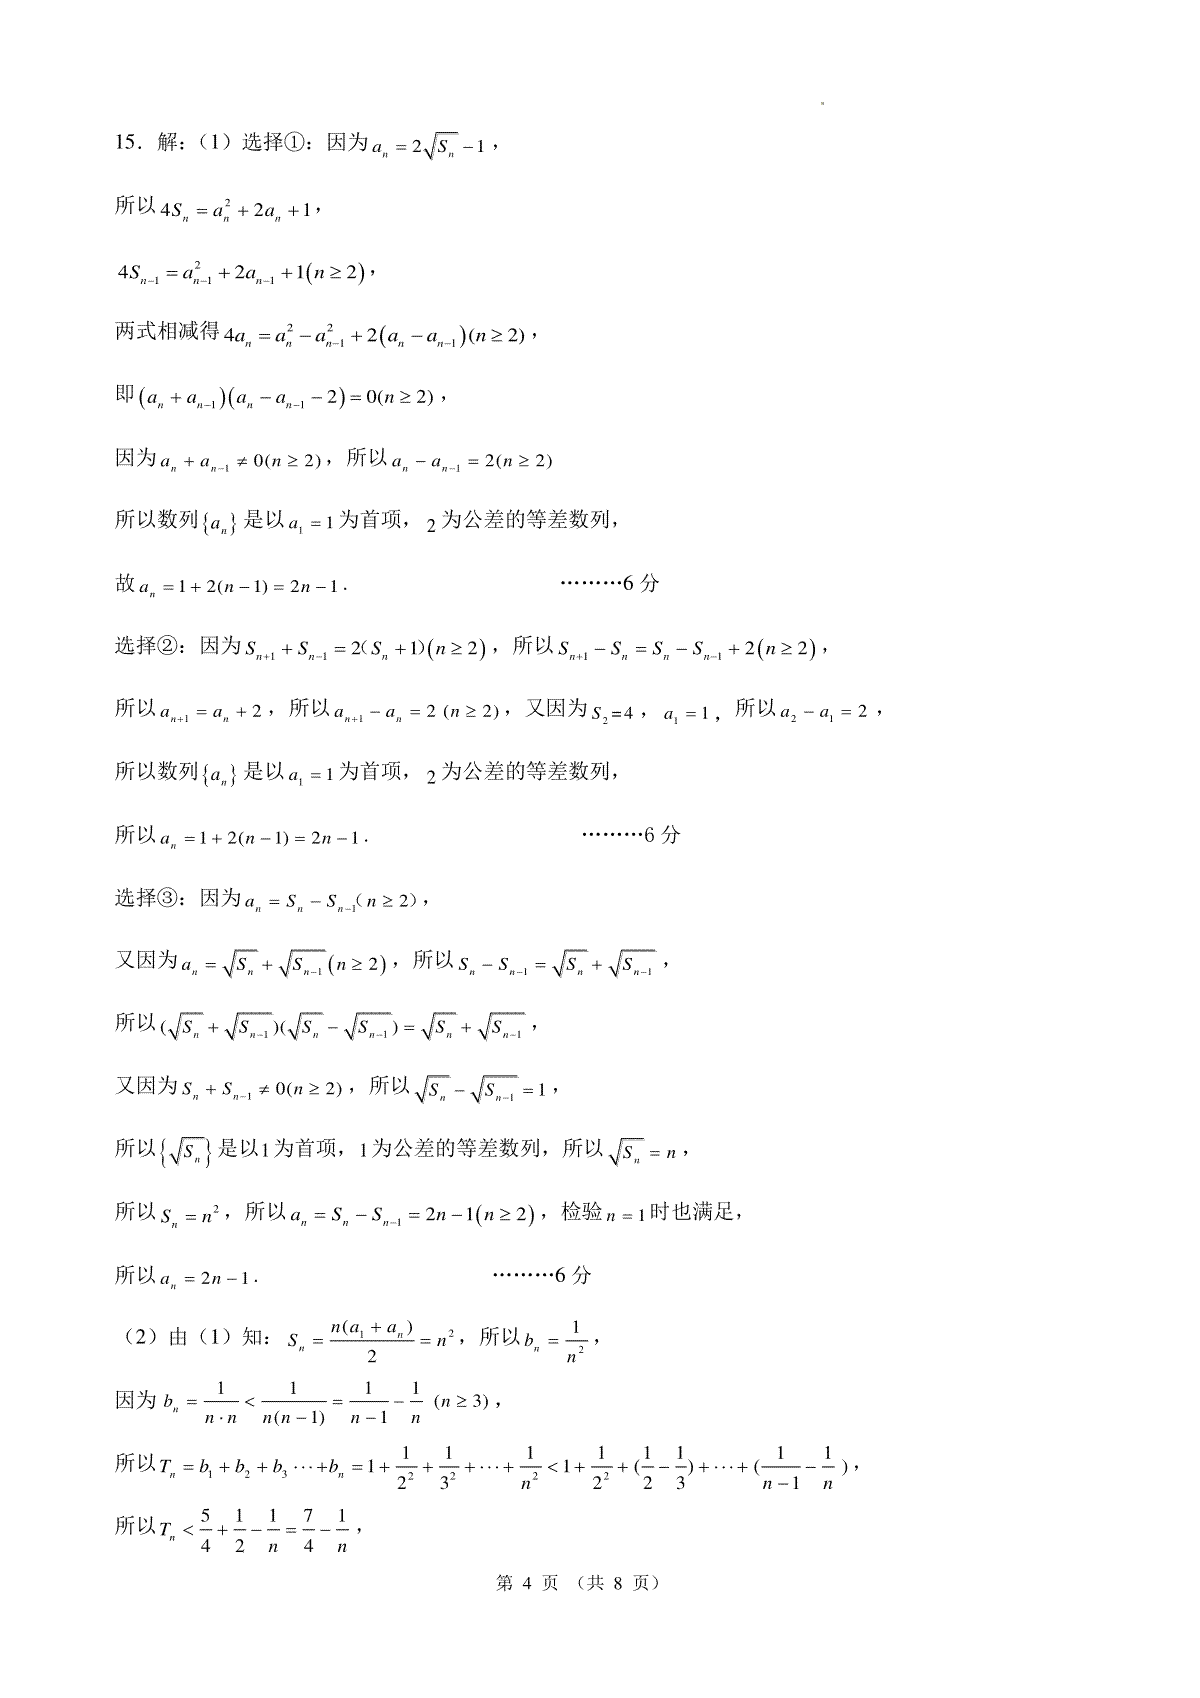 15．解：（1）选择①：因为 $a_n = 2\sqrt{S_n} - 1$，
所以 $4S_n = a_n^2 + 2a_n + 1$，
$4S_{n-1} = a_{n-1}^2 + 2a_{n-1} + 1(n \ge 2)$，
两式相减得 $4a_n = a_n^2 - a_{n-1}^2 + 2(a_n - a_{n-1})(n \ge 2)$，
即 $(a_n + a_{n-1})(a_n - a_{n-1} - 2) = 0(n \ge 2)$，
因为 $a_n + a_{n-1} \ne 0(n \ge 2)$，所以 $a_n - a_{n-1} = 2(n \ge 2)$
所以数列 $\{a_n\}$ 是以 $a_1 = 1$ 为首项，2 为公差的等差数列，
故 $a_n = 1 + 2(n-1) = 2n - 1$． ………6 分
选择②：因为 $S_{n+1} + S_{n-1} = 2（S_n + 1）(n \ge 2)$，所以 $S_{n+1} - S_n = S_n - S_{n-1} + 2(n \ge 2)$，
所以 $a_{n+1} = a_n + 2$，所以 $a_{n+1} - a_n = 2\ (n \ge 2)$，又因为 $S_2 = 4$，$a_1 = 1$，所以 $a_2 - a_1 = 2$，
所以数列 $\{a_n\}$ 是以 $a_1 = 1$ 为首项，2 为公差的等差数列，
所以 $a_n = 1 + 2(n-1) = 2n - 1$． ………6 分
选择③：因为 $a_n = S_n - S_{n-1}（n \ge 2）$，
又因为 $a_n = \sqrt{S_n} + \sqrt{S_{n-1}}(n \ge 2)$，所以 $S_n - S_{n-1} = \sqrt{S_n} + \sqrt{S_{n-1}}$，
所以 $(\sqrt{S_n} + \sqrt{S_{n-1}})(\sqrt{S_n} - \sqrt{S_{n-1}}) = \sqrt{S_n} + \sqrt{S_{n-1}}$，
又因为 $S_n + S_{n-1} \ne 0(n \ge 2)$，所以 $\sqrt{S_n} - \sqrt{S_{n-1}} = 1$，
所以 $\{\sqrt{S_n}\}$ 是以1为首项，1为公差的等差数列，所以 $\sqrt{S_n} = n$，
所以 $S_n = n^2$，所以 $a_n = S_n - S_{n-1} = 2n - 1(n \ge 2)$，检验 $n = 1$ 时也满足，
所以 $a_n = 2n - 1$． ………6 分
（2）由（1）知：$S_n = \frac{n(a_1 + a_n)}{2} = n^2$，所以 $b_n = \frac{1}{n^2}$，
因为 $b_n = \frac{1}{n \cdot n} < \frac{1}{n(n-1)} = \frac{1}{n-1} - \frac{1}{n}\ (n \ge 3)$，
所以 $T_n = b_1 + b_2 + b_3 \cdots + b_n = 1 + \frac{1}{2^2} + \frac{1}{3^2} + \cdots + \frac{1}{n^2} < 1 + \frac{1}{2^2} + (\frac{1}{2} - \frac{1}{3}) + \cdots + (\frac{1}{n-1} - \frac{1}{n})$，
所以 $T_n < \frac{5}{4} + \frac{1}{2} - \frac{1}{n} = \frac{7}{4} - \frac{1}{n}$，
第 4 页 （共 8 页）